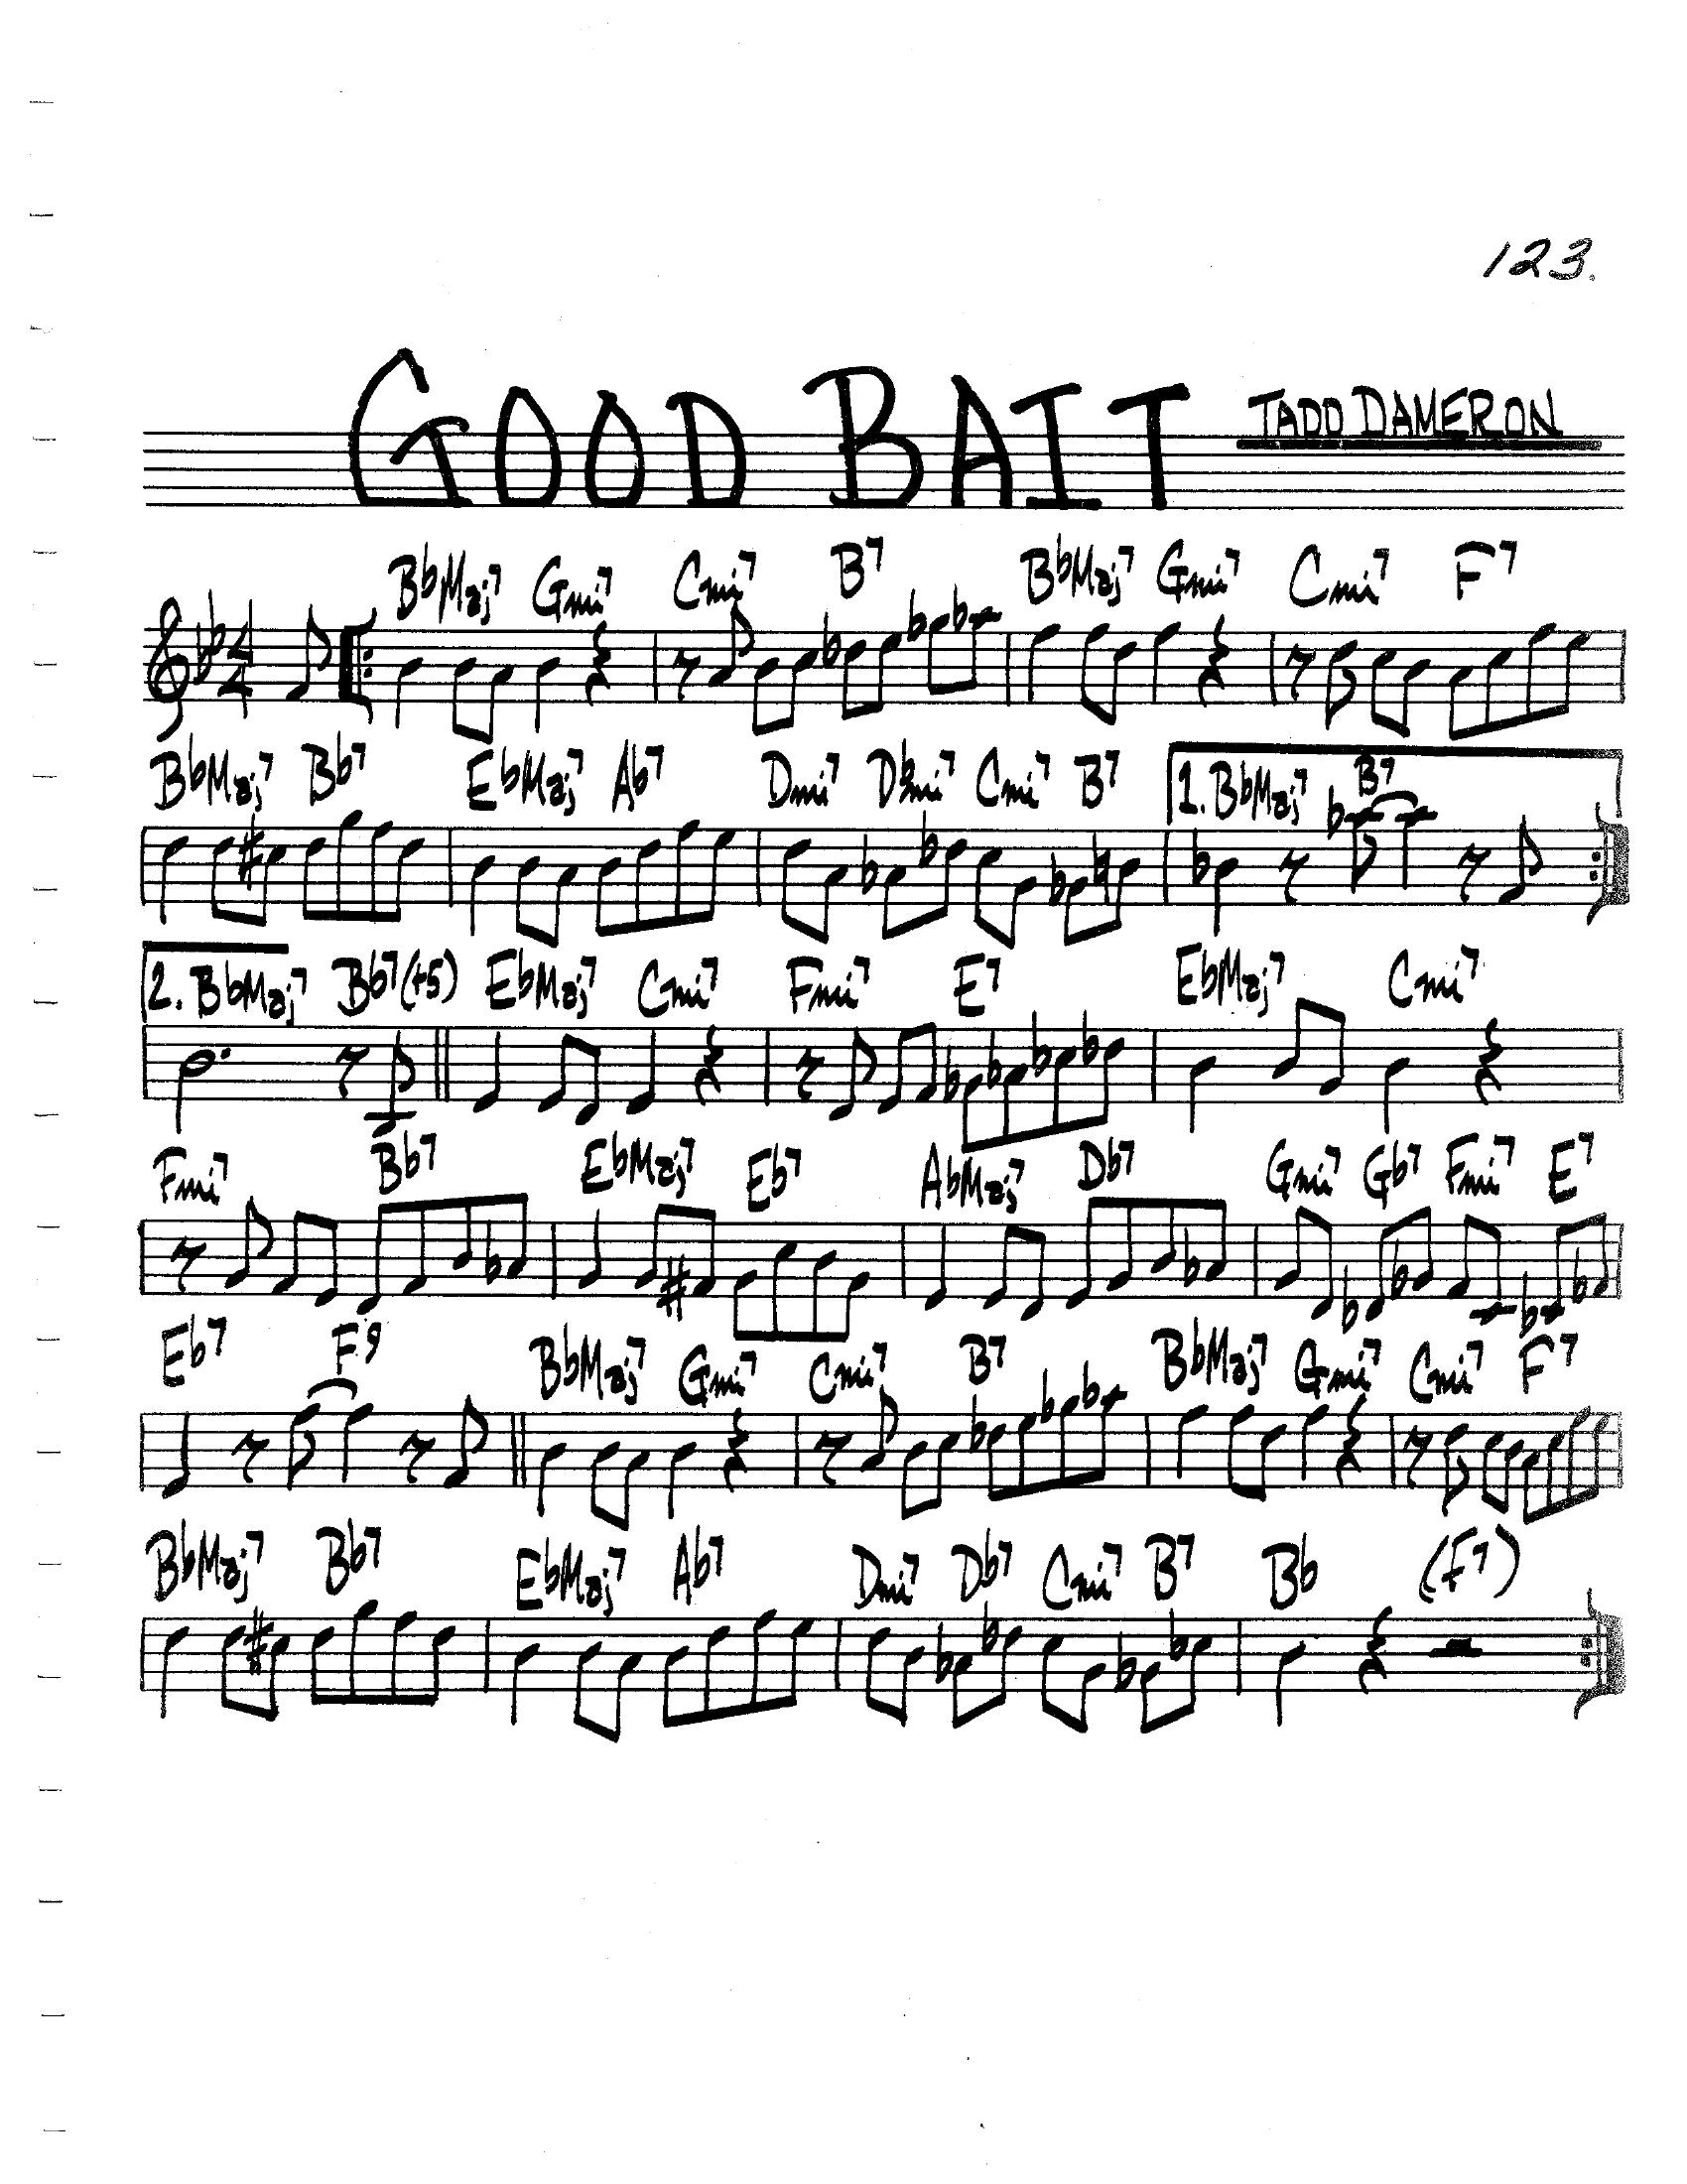 123.
GOOD BAIT TADD DAMERON
BbMaj7 Gmi7 Cmi7 B7 BbMaj7 Gmi7 Cmi7 F7
4
4
BbMaj7 Bb7 EbMaj7 Ab7 Dmi7 Dbmi7 Cmi7 B7 1. BbMaj7 B7
2. BbMaj7 Bb7(+5) EbMaj7 Cmi7 Fmi7 E7 EbMaj7 Cmi7
Fmi7 Bb7 EbMaj7 Eb7 AbMaj7 Db7 Gmi7 Gb7 Fmi7 E7
Eb7 F9 BbMaj7 Gmi7 Cmi7 B7 BbMaj7 Gmi7 Cmi7 F7
BbMaj7 Bb7 EbMaj7 Ab7 Dmi7 Db7 Cmi7 B7 Bb (F7)